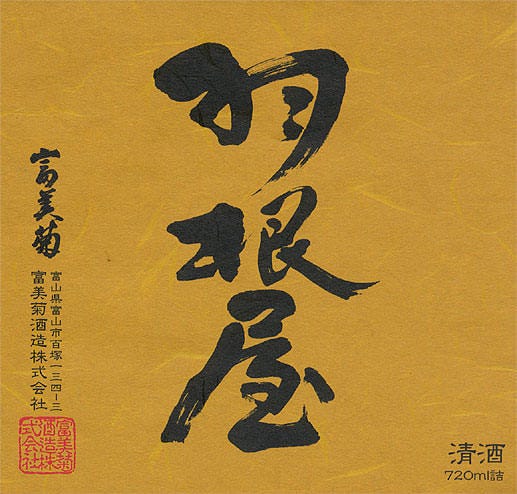 羽根屋
富美菊
富山県富山市百塚一三四-三
富美菊酒造株式会社
富美菊
酒造株
式会社
清酒
720ml詰